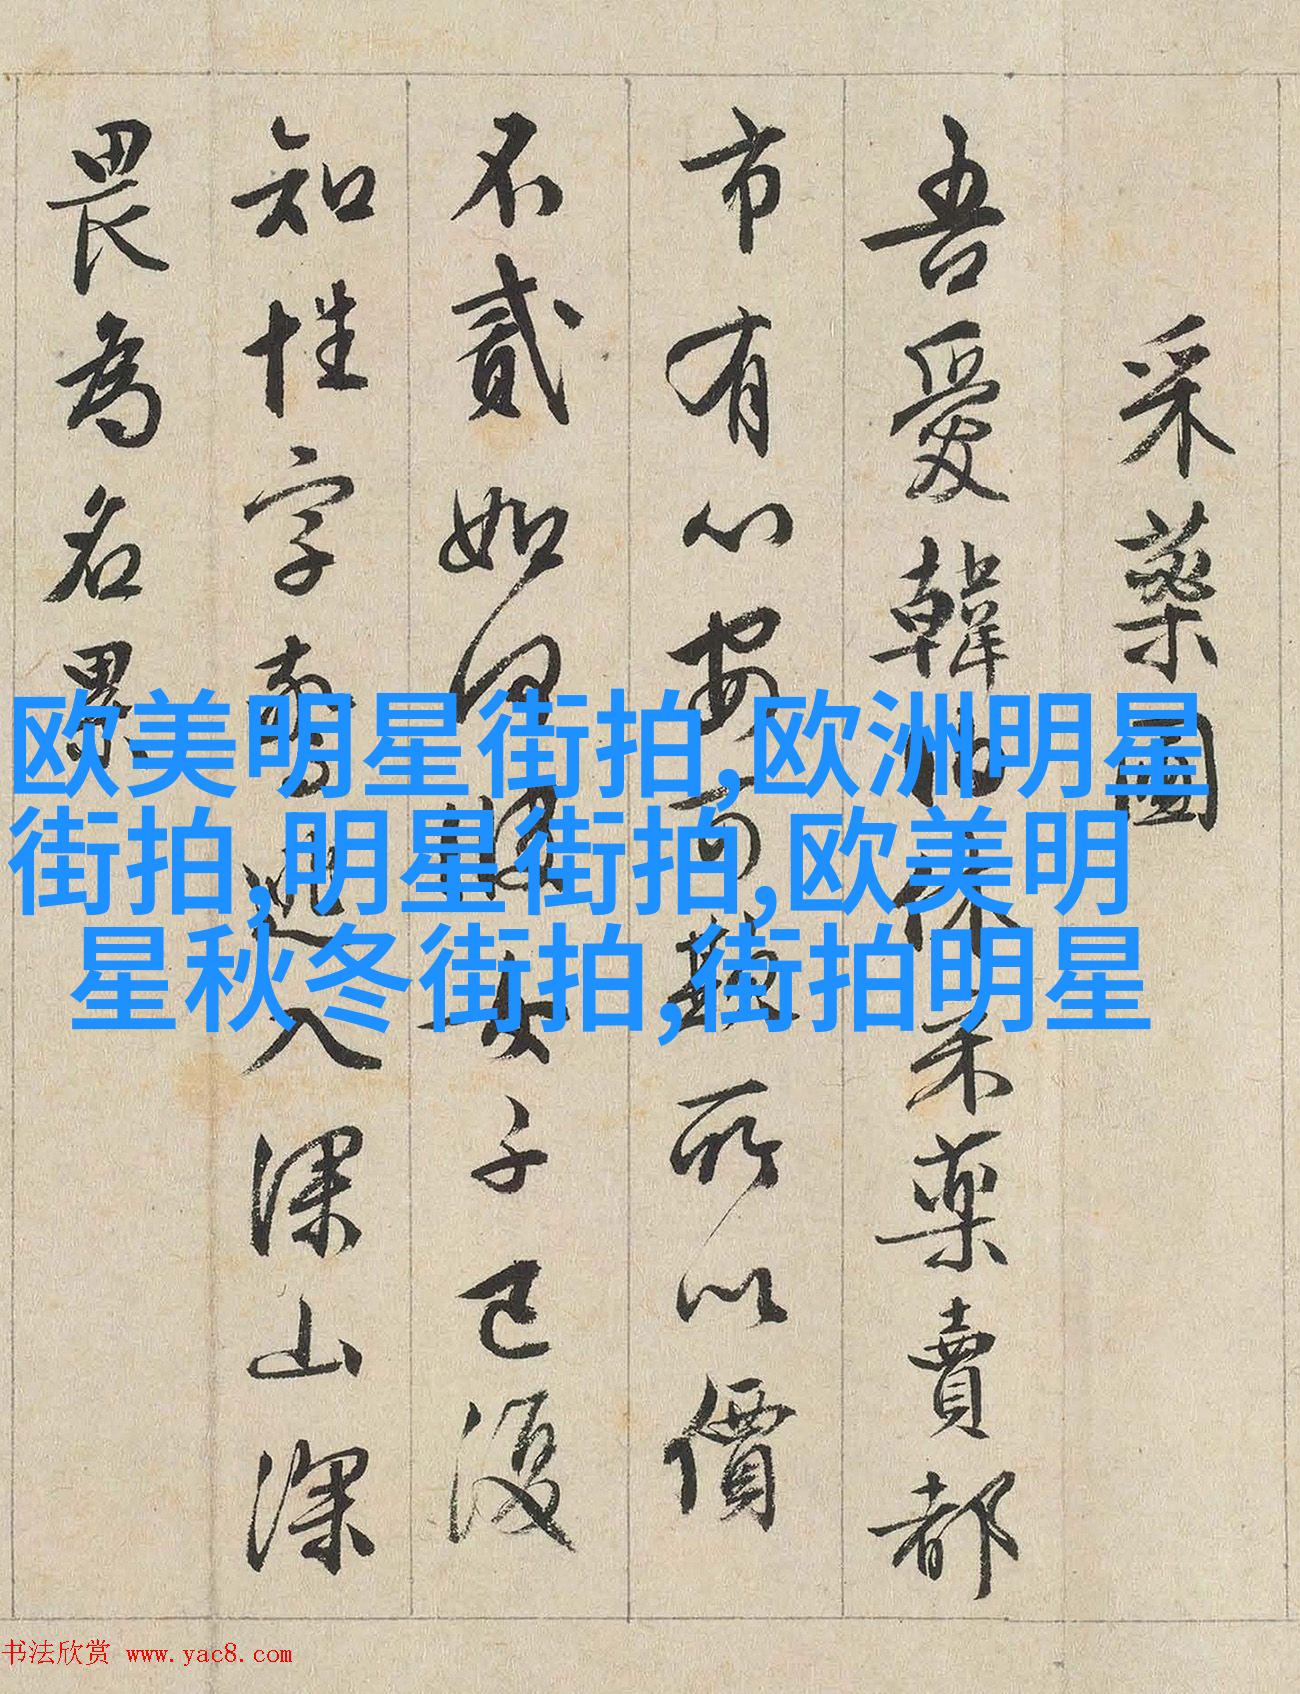 采藥圖
吾愛韓伯休采藥賣都
市有心安可欺所以價
不貳如何女子已復
知姓字驚逃入深山深
畏為名累
欧美明星街拍,欧洲明星
街拍,明星街拍,欧美明
星秋冬街拍,街拍明星
书法欣赏 www.yac8.com